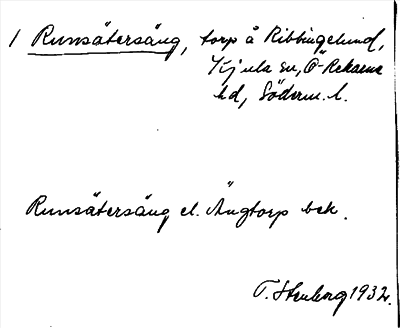 1 Runsätersäng, torp å Ribbingelund,
Kjula sn, Ö-Rekarne
hd, Söderm. l.
Runsätersäng el. Ängtorp bek.
T. Stenberg 1932.